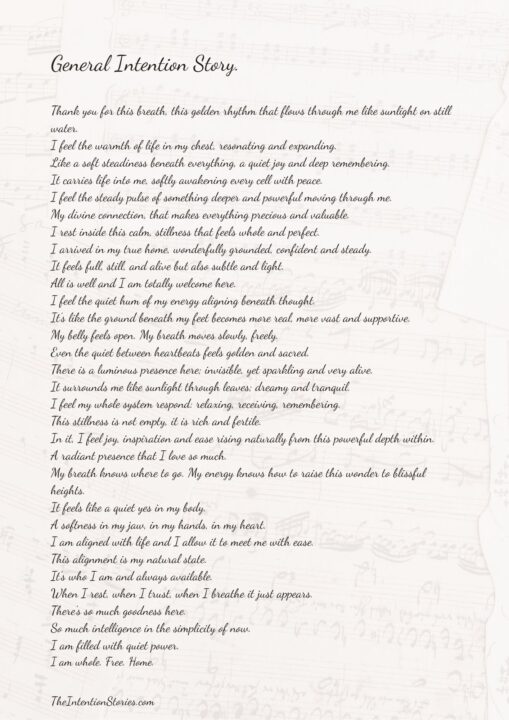 General Intention Story.
Thank you for this breath, this golden rhythm that flows through me like sunlight on still
water.
I feel the warmth of life in my chest, resonating and expanding.
Like a soft steadiness beneath everything, a quiet joy and deep remembering.
It carries life into me, softly awakening every cell with peace.
I feel the steady pulse of something deeper and powerful moving through me.
My divine connection, that makes everything precious and valuable.
I rest inside this calm, stillness that feels whole and perfect.
I arrived in my true home, wonderfully grounded, confident and steady.
It feels full, still, and alive but also subtle and light.
All is well and I am totally welcome here.
I feel the quiet hum of my energy aligning beneath thought.
It's like the ground beneath my feet becomes more real, more vast and supportive.
My belly feels open. My breath moves slowly, freely.
Even the quiet between heartbeats feels golden and sacred.
There is a luminous presence here; invisible, yet sparkling and very alive.
It surrounds me like sunlight through leaves; dreamy and tranquil.
I feel my whole system respond; relaxing, receiving, remembering.
This stillness is not empty, it is rich and fertile.
In it, I feel joy, inspiration and ease rising naturally from this powerful depth within.
A radiant presence that I love so much.
My breath knows where to go. My energy knows how to raise this wonder to blissful
heights.
It feels like a quiet yes in my body.
A softness in my jaw, in my hands, in my heart.
I am aligned with life and I allow it to meet me with ease.
This alignment is my natural state.
It's who I am and always available.
When I rest, when I trust, when I breathe it just appears.
There's so much goodness here.
So much intelligence in the simplicity of now.
I am filled with quiet power.
I am whole. Free. Home.
TheIntentionStories.com